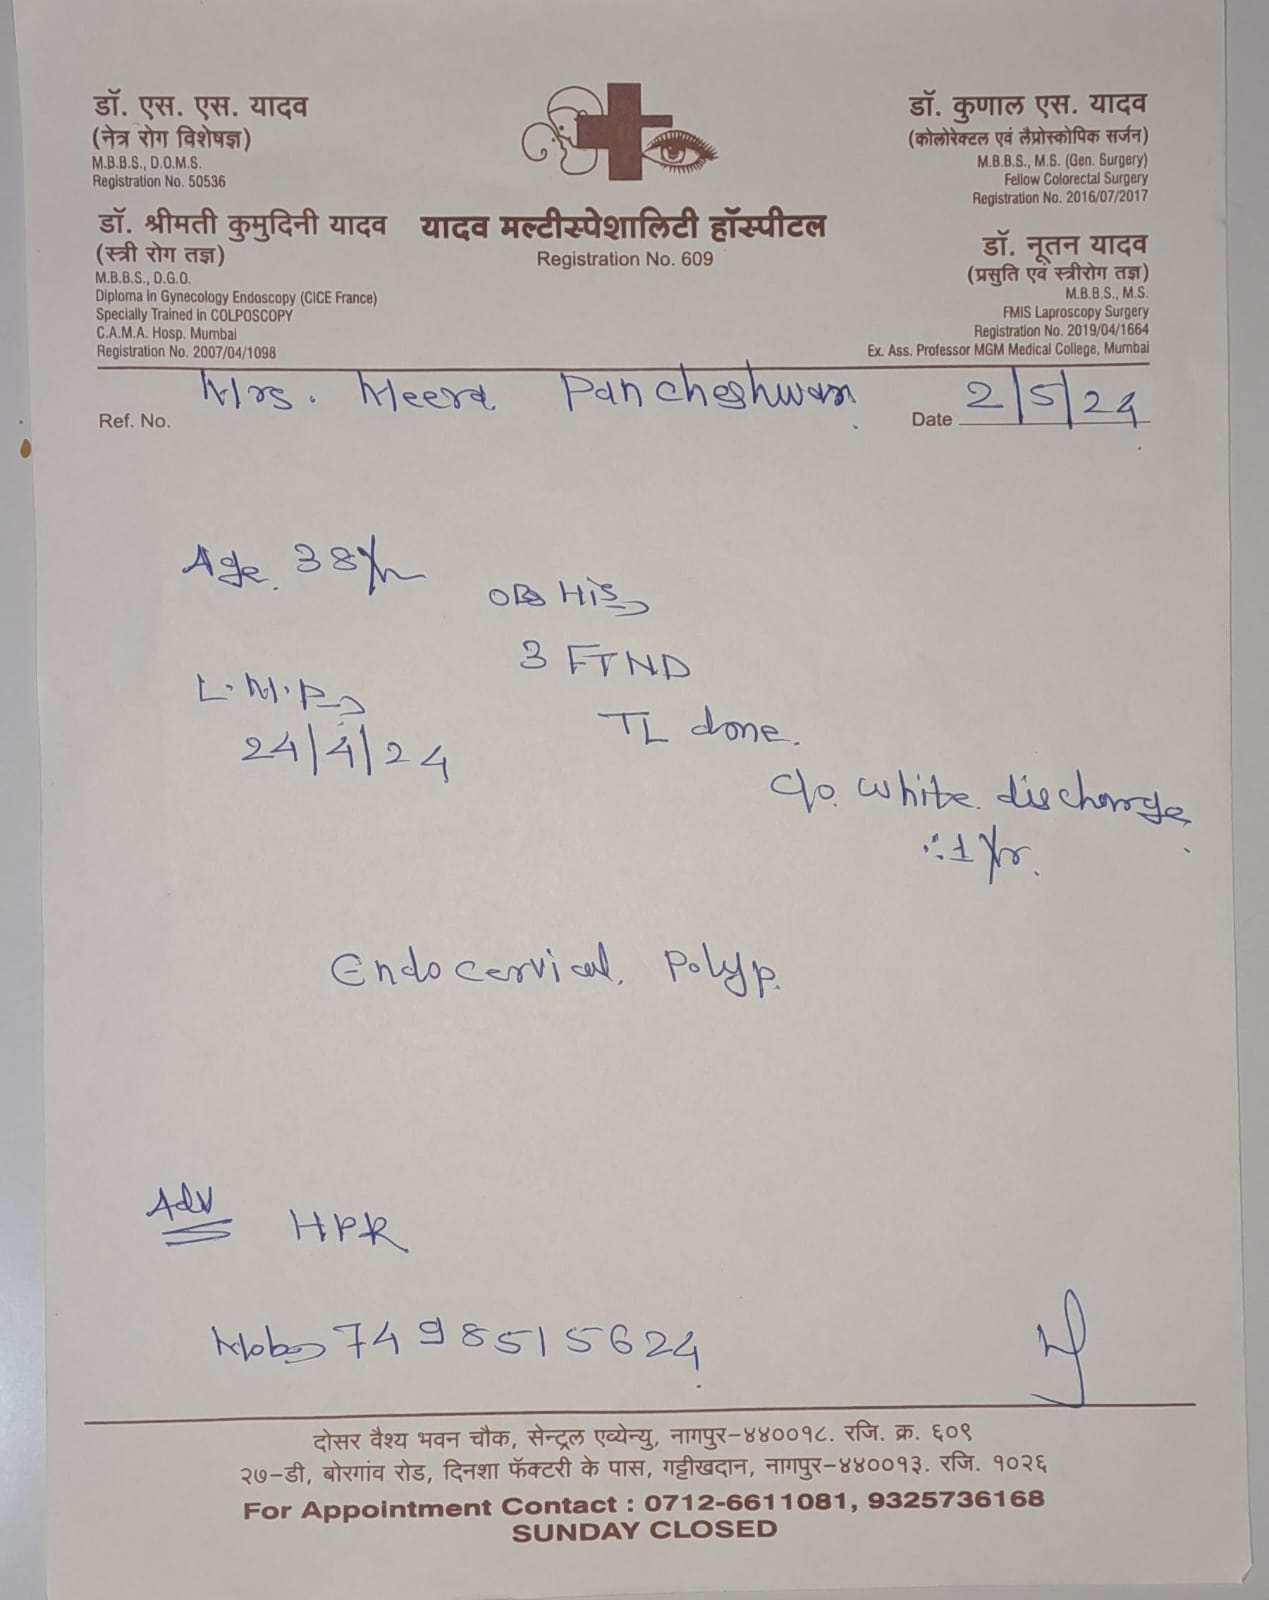 डॉ. एस. एस. यादव
(नेत्र रोग विशेषज्ञ)
M.B.B.S., D.O.M.S.
Registration No. 50536
डॉ. श्रीमती कुमुदिनी यादव
(स्त्री रोग तज्ञ)
M.B.B.S., D.G.O.
Diploma in Gynecology Endoscopy (CICE France)
Specially Trained in COLPOSCOPY
C.A.M.A. Hosp. Mumbai
Registration No. 2007/04/1098
यादव मल्टीस्पेशालिटी हॉस्पीटल
Registration No. 609
डॉ. कुणाल एस. यादव
(कोलोरेक्टल एवं लॅप्रोस्कोपिक सर्जन)
M.B.B.S., M.S. (Gen. Surgery)
Fellow Colorectal Surgery
Registration No. 2016/07/2017
डॉ. नूतन यादव
(प्रसुति एवं स्त्रीरोग तज्ञ)
M.B.B.S., M.S.
FMIS Laproscopy Surgery
Registration No. 2019/04/1664
Ex. Ass. Professor MGM Medical College, Mumbai
Mrs. Meera Pancheshwar
Ref. No.
Date 2/5/24
Age. 38 Yr
OBs His
3 FTND
L.M.P.
TL done.
24/4/24
c/o. white discharge
∴ 1 Yr.
Endocervical. Polyp.
Adv HPR
Mob 7498515624
दोसर वैश्य भवन चौक, सेन्ट्रल एव्येन्यु, नागपुर-४४००१८. रजि. क्र. ६०९
२७-डी, बोरगांव रोड, दिनशा फॅक्टरी के पास, गट्टीखदान, नागपुर-४४००१३. रजि. १०२६
For Appointment Contact : 0712-6611081, 9325736168
SUNDAY CLOSED